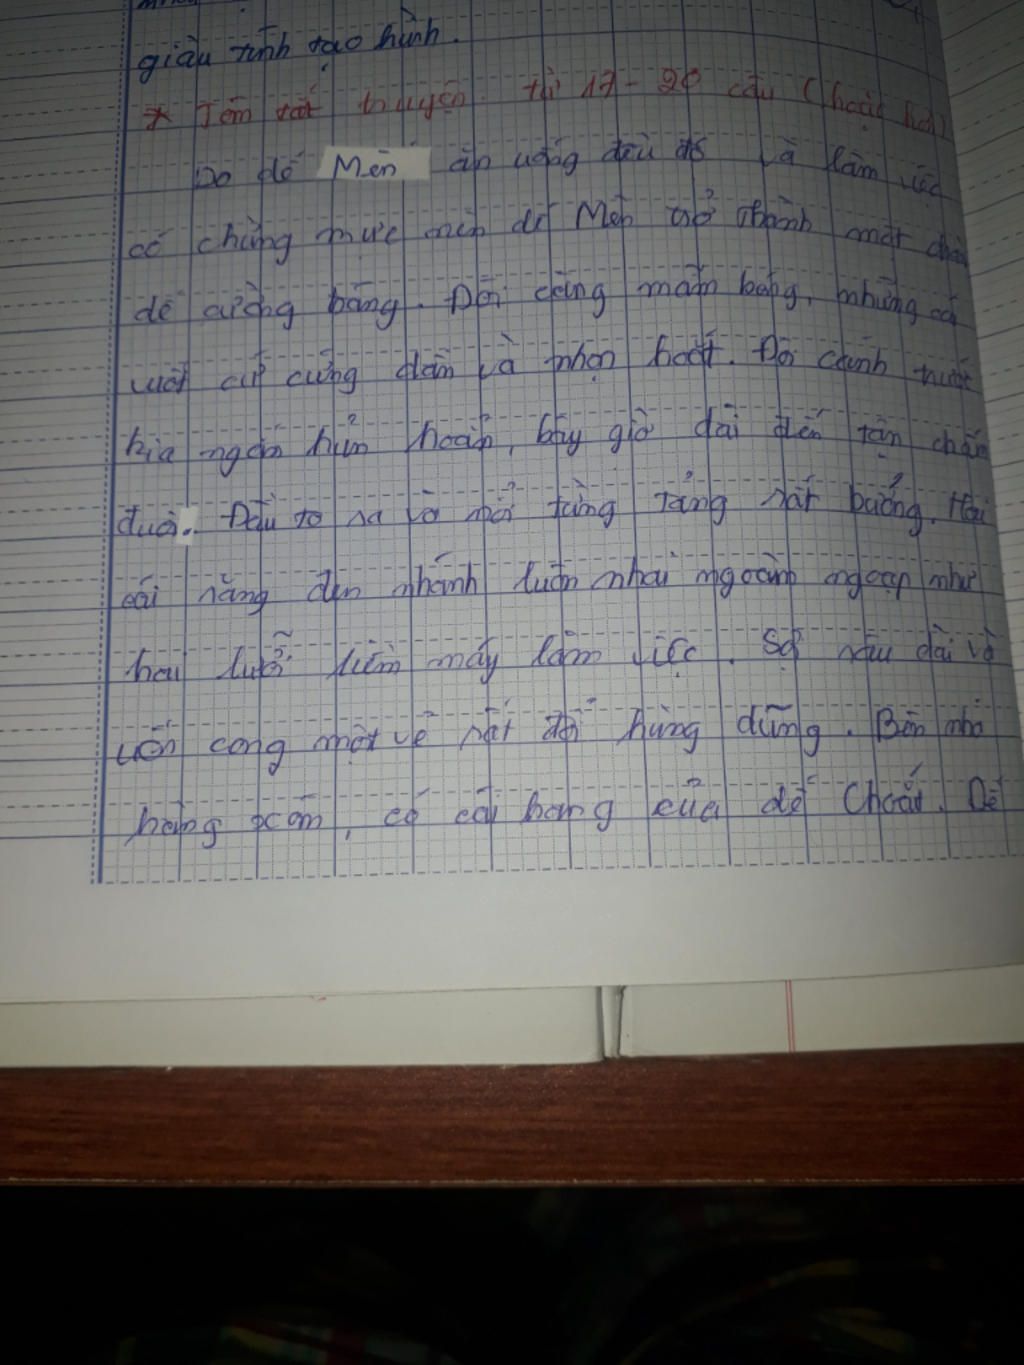 giàu tính tạo hình.
* Tóm tắt truyện từ 17 - 20 câu (hoặc hơn)
Do dế Mèn ăn uống điều độ và làm việc
có chừng mực nên dế Mèn trở thành một chàng
dế cường tráng. Đôi càng mẫm bóng, những cái
vuốt cứ cứng dần và nhọn hoắt. Đôi cánh trước
kia ngắn hủn hoẳn, bây giờ dài đến tận chấm
đuôi. Đầu to ra và nổi từng tảng rất bướng. Hai
cái răng đen nhánh luôn nhai ngoàm ngoạp như
hai lưỡi liềm máy làm việc. Sợi râu dài và
uốn cong một vẻ rất đỗi hùng dũng. Bên nhà
hàng xóm, có cái hang của dế Choắt. Dế